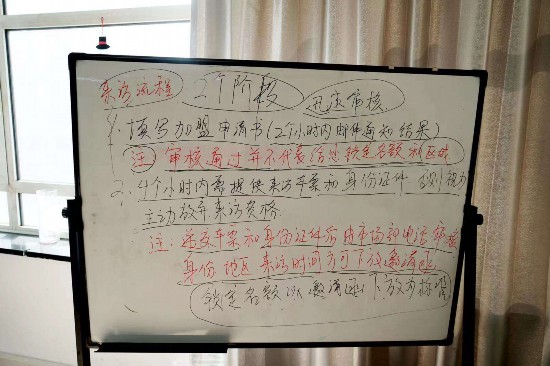 来访流程 2个阶段 迅速审核
1. 填写加盟申请书(2个小时内邮件通知结果)
注 审核通过并不代表给您锁定名额和区域
2. 4个小时内需提供来访车票和身份证件 否则视为
主动放弃来访资格
注: 递交车票和身份证件后由市场部电话审核
身份 地区 来访时间方可下放邀请函
锁定名额以邀请函下放为标准